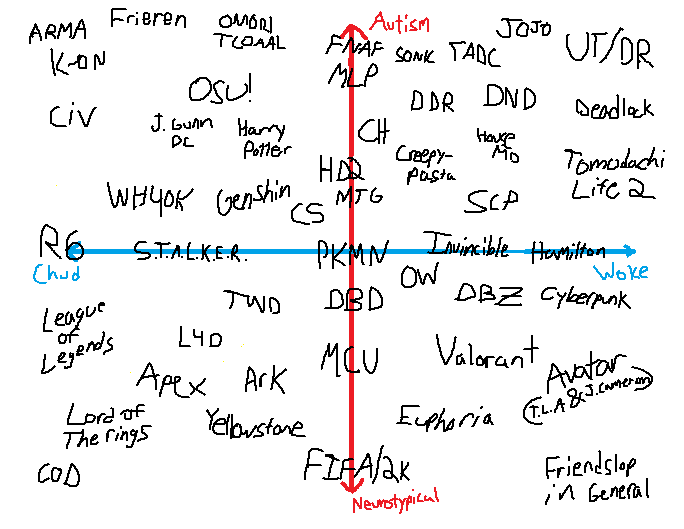 Autism
ARMA
Frieren
OMORI
TCOAAL
FNAF
SONIC
TADC
JOJO
UT/DR
K-ON
MLP
OSU!
DDR
DND
Deadlock
CiV
J. Gunn
DC
Harry
Potter
CH
Creepy-
pasta
House
MD
Tomodachi
Life 2
HD2
WH40K
Genshin
MTG
CS
SCP
R6
S.T.A.L.K.E.R.
PKMN
Invincible
Hamilton
Chud
Woke
OW
TWD
DBD
DBZ
Cyberpunk
League
of
Legends
L4D
MCU
Valorant
Avatar
(T.L.A & J. Cameron)
Apex
Ark
Lord of
The rings
Yellowstone
Euphoria
COD
FIFA/2K
Friendslop
in General
Neurotypical